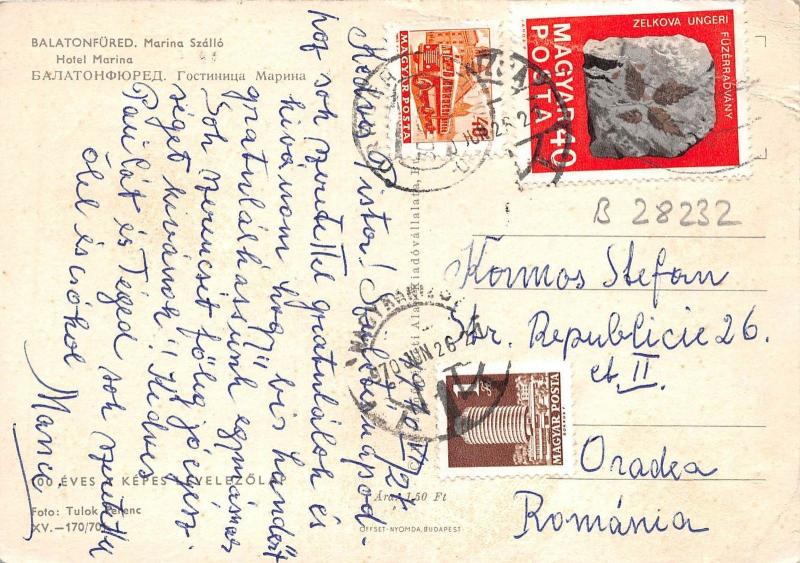 BALATONFÜRED. Marina Szálló
Hotel Marina
БАЛАТОНФЮРЕД. Гостиница Марина
MAGYAR POSTA
40f
MAGYAR POSTA
40
ZELKOVA UNGERI
FÜZÉRRADVÁNY
B 28232
Kedves Pistor! Születésnapod-
hoz sok szeretettel gratulálok és
kivánom hogy bis hundert
gratulálhassunk egymásnak
Sok szerencsét főleg jó egész-
séget kivánok!! Kedves
Paulát és Téged sok szeretettel
ölel és csókol
Manci
Kormos Stefan
Str. Republicie 26.
et II.
Oradea
România
NAGYKANIZSA
970 JUN 26
MAGYAR POSTA
1
Kiadóvállalata, B
100 ÉVES A KÉPES LEVELEZŐLAP
Foto: Tulok Ferenc
XV.—170/70
Ára: 1,50 Ft
OFFSET-NYOMDA, BUDAPEST